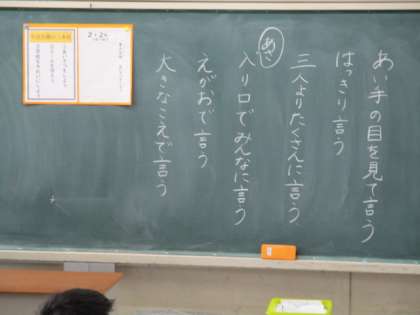 あい手の目を見て言う
はっきり言う
三人よりたくさんに言う
あさ
入り口でみんなに言う
えがおで言う
大きなこえで言う